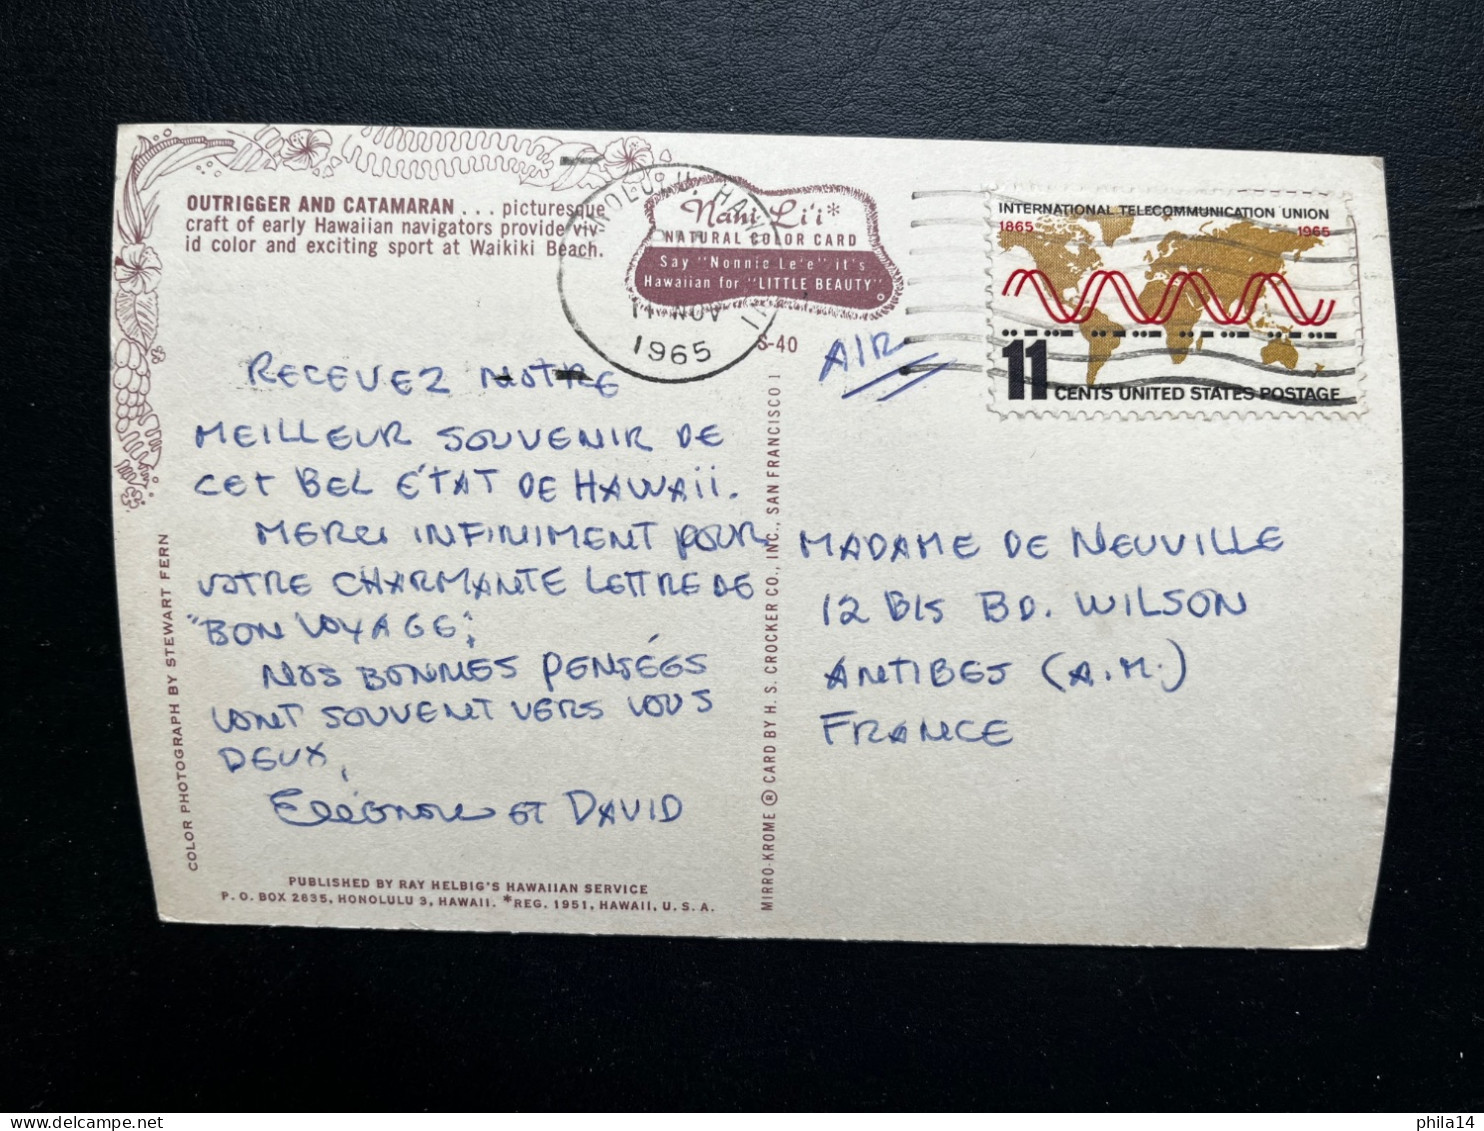 OUTRIGGER AND CATAMARAN . . . picturesque
craft of early Hawaiian navigators provide viv-
id color and exciting sport at Waikiki Beach.
Nani Li'i*
NATURAL COLOR CARD
Say "Nonnie Le'e" it's
Hawaiian for "LITTLE BEAUTY"
HONOLULU HAWAII
NOV
1965
S-40
AIR
INTERNATIONAL TELECOMMUNICATION UNION
1865 1965
11 CENTS UNITED STATES POSTAGE
RECEVEZ NOTRE
MEILLEUR SOUVENIR DE
CET BEL ÉTAT DE HAWAII.
MERCI INFINIMENT POUR
VOTRE CHARMANTE LETTRE DE
"BON VOYAGE".
NOS BONNES PENSÉES
VONT SOUVENT VERS VOUS
DEUX,
Eléonore ET DAVID
MADAME DE NEUVILLE
12 BIS BD. WILSON
ANTIBES (A.M.)
FRANCE
COLOR PHOTOGRAPH BY STEWART FERN
MIRRO-KROME ® CARD BY H. S. CROCKER CO., INC., SAN FRANCISCO 1
PUBLISHED BY RAY HELBIG'S HAWAIIAN SERVICE
P. O. BOX 2835, HONOLULU 3, HAWAII. *REG. 1951, HAWAII, U. S. A.
phila14